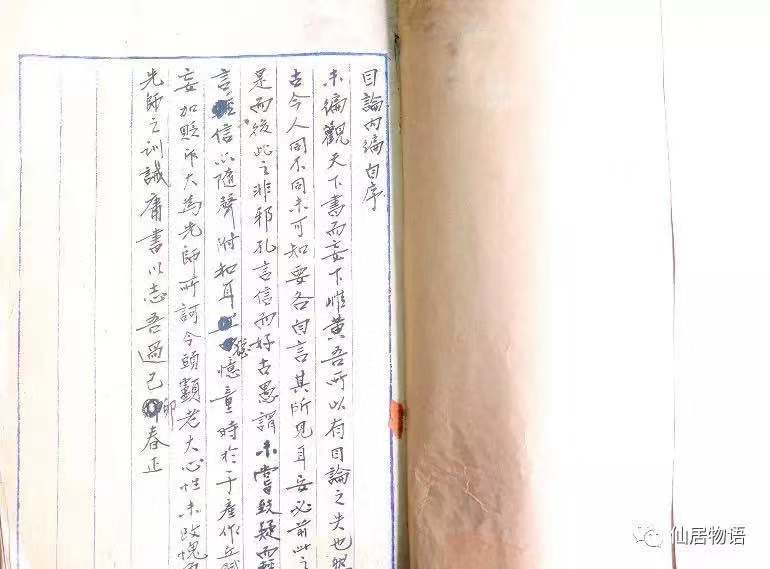 目論內编自序
未徧觀天下書而妄下雌黄吾所以有目論之失也
古今人同不同未可知要各自言其所見耳妄必前此之
是而後此之非邪孔言信而好古愚謂未嘗致疑而
言信以隨聲附和耳憶童時於子產作丘
妄加貶斥大為先師所訶今頭顱老大心性未改愧
先師之训誡庸書以志吾過己卯春正
仙居物语